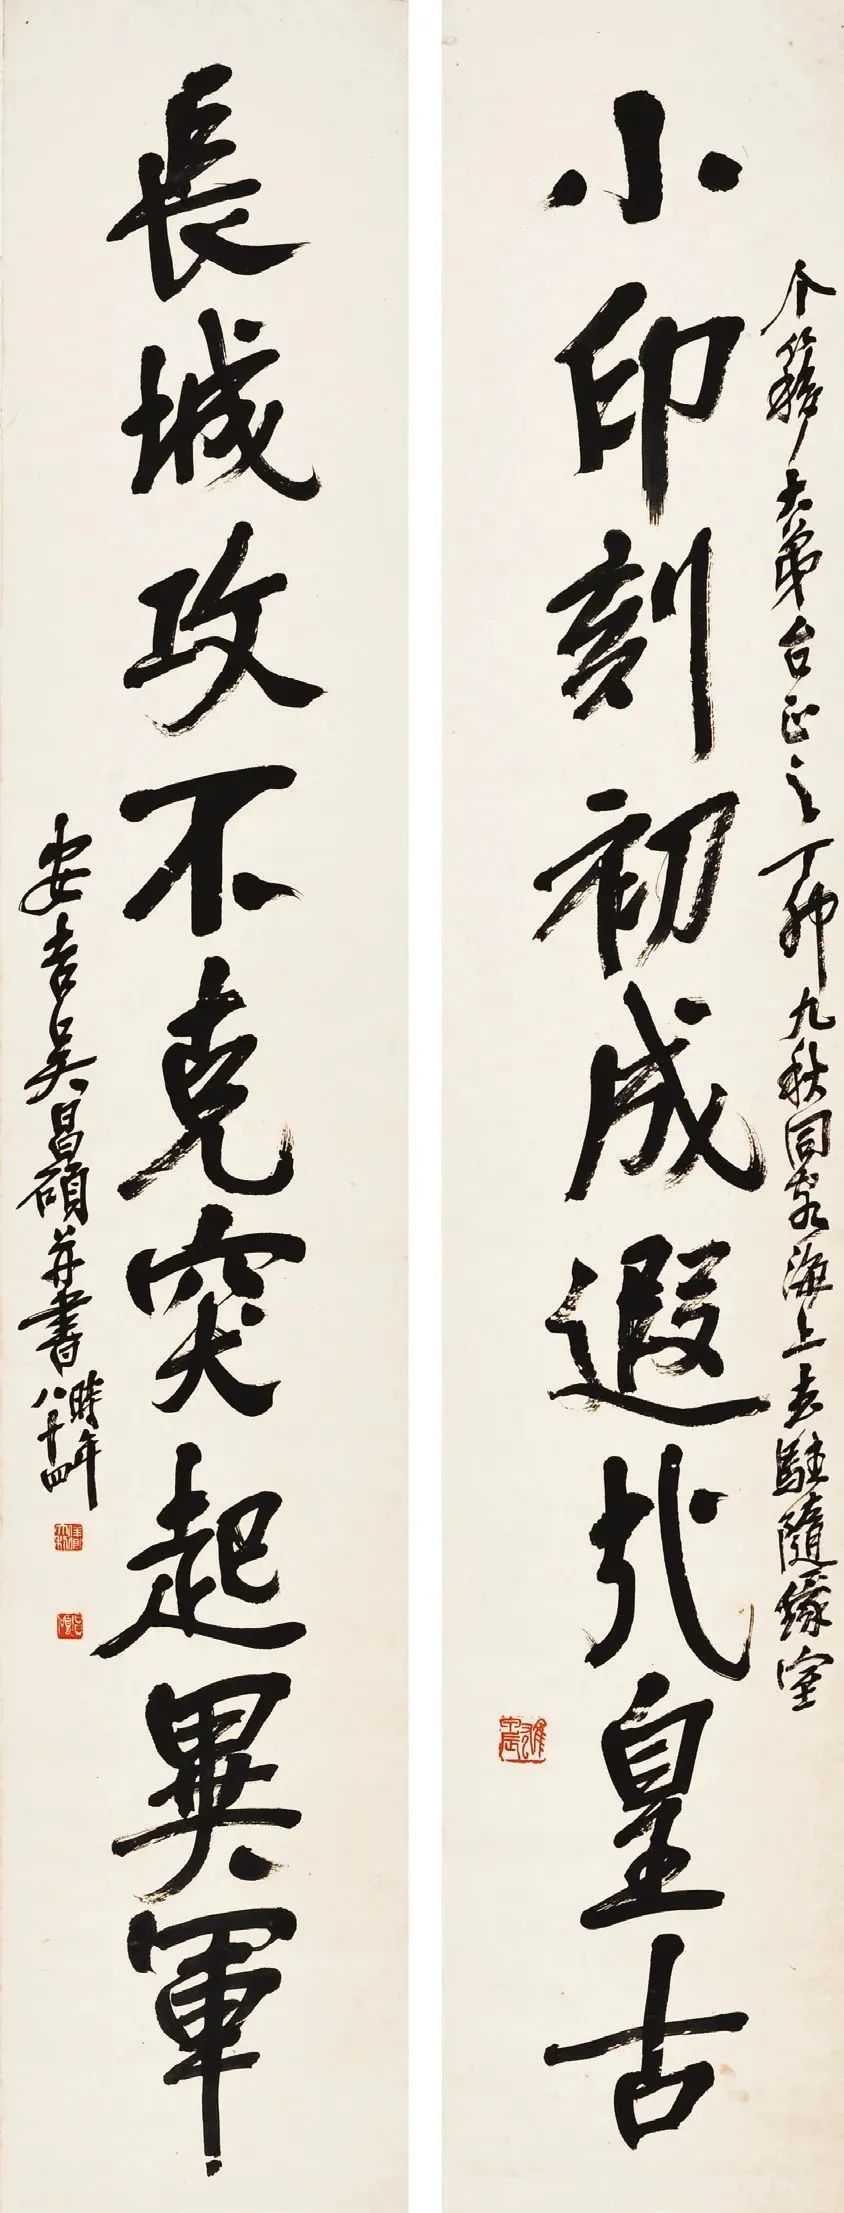 个簃大弟台正之丁卯九秋同客海上去駐隨緣室
小印刻初成遐哉皇古
長城攻不克突起異軍
安吉吳昌碩并書時年八十四